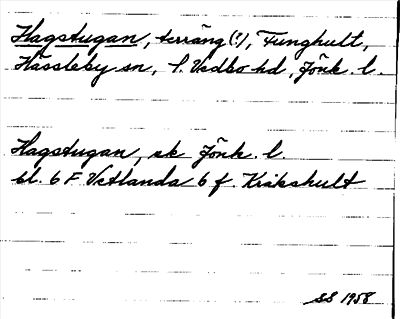 Hagstugan, terräng(!), Funghult,
Hässleby sn, S. Vedbo hd, Jönk. l.
Hagstugan, ek Jönk. l.
bl. 6 F Vetlanda 6 f. Kråkshult
SS 1958